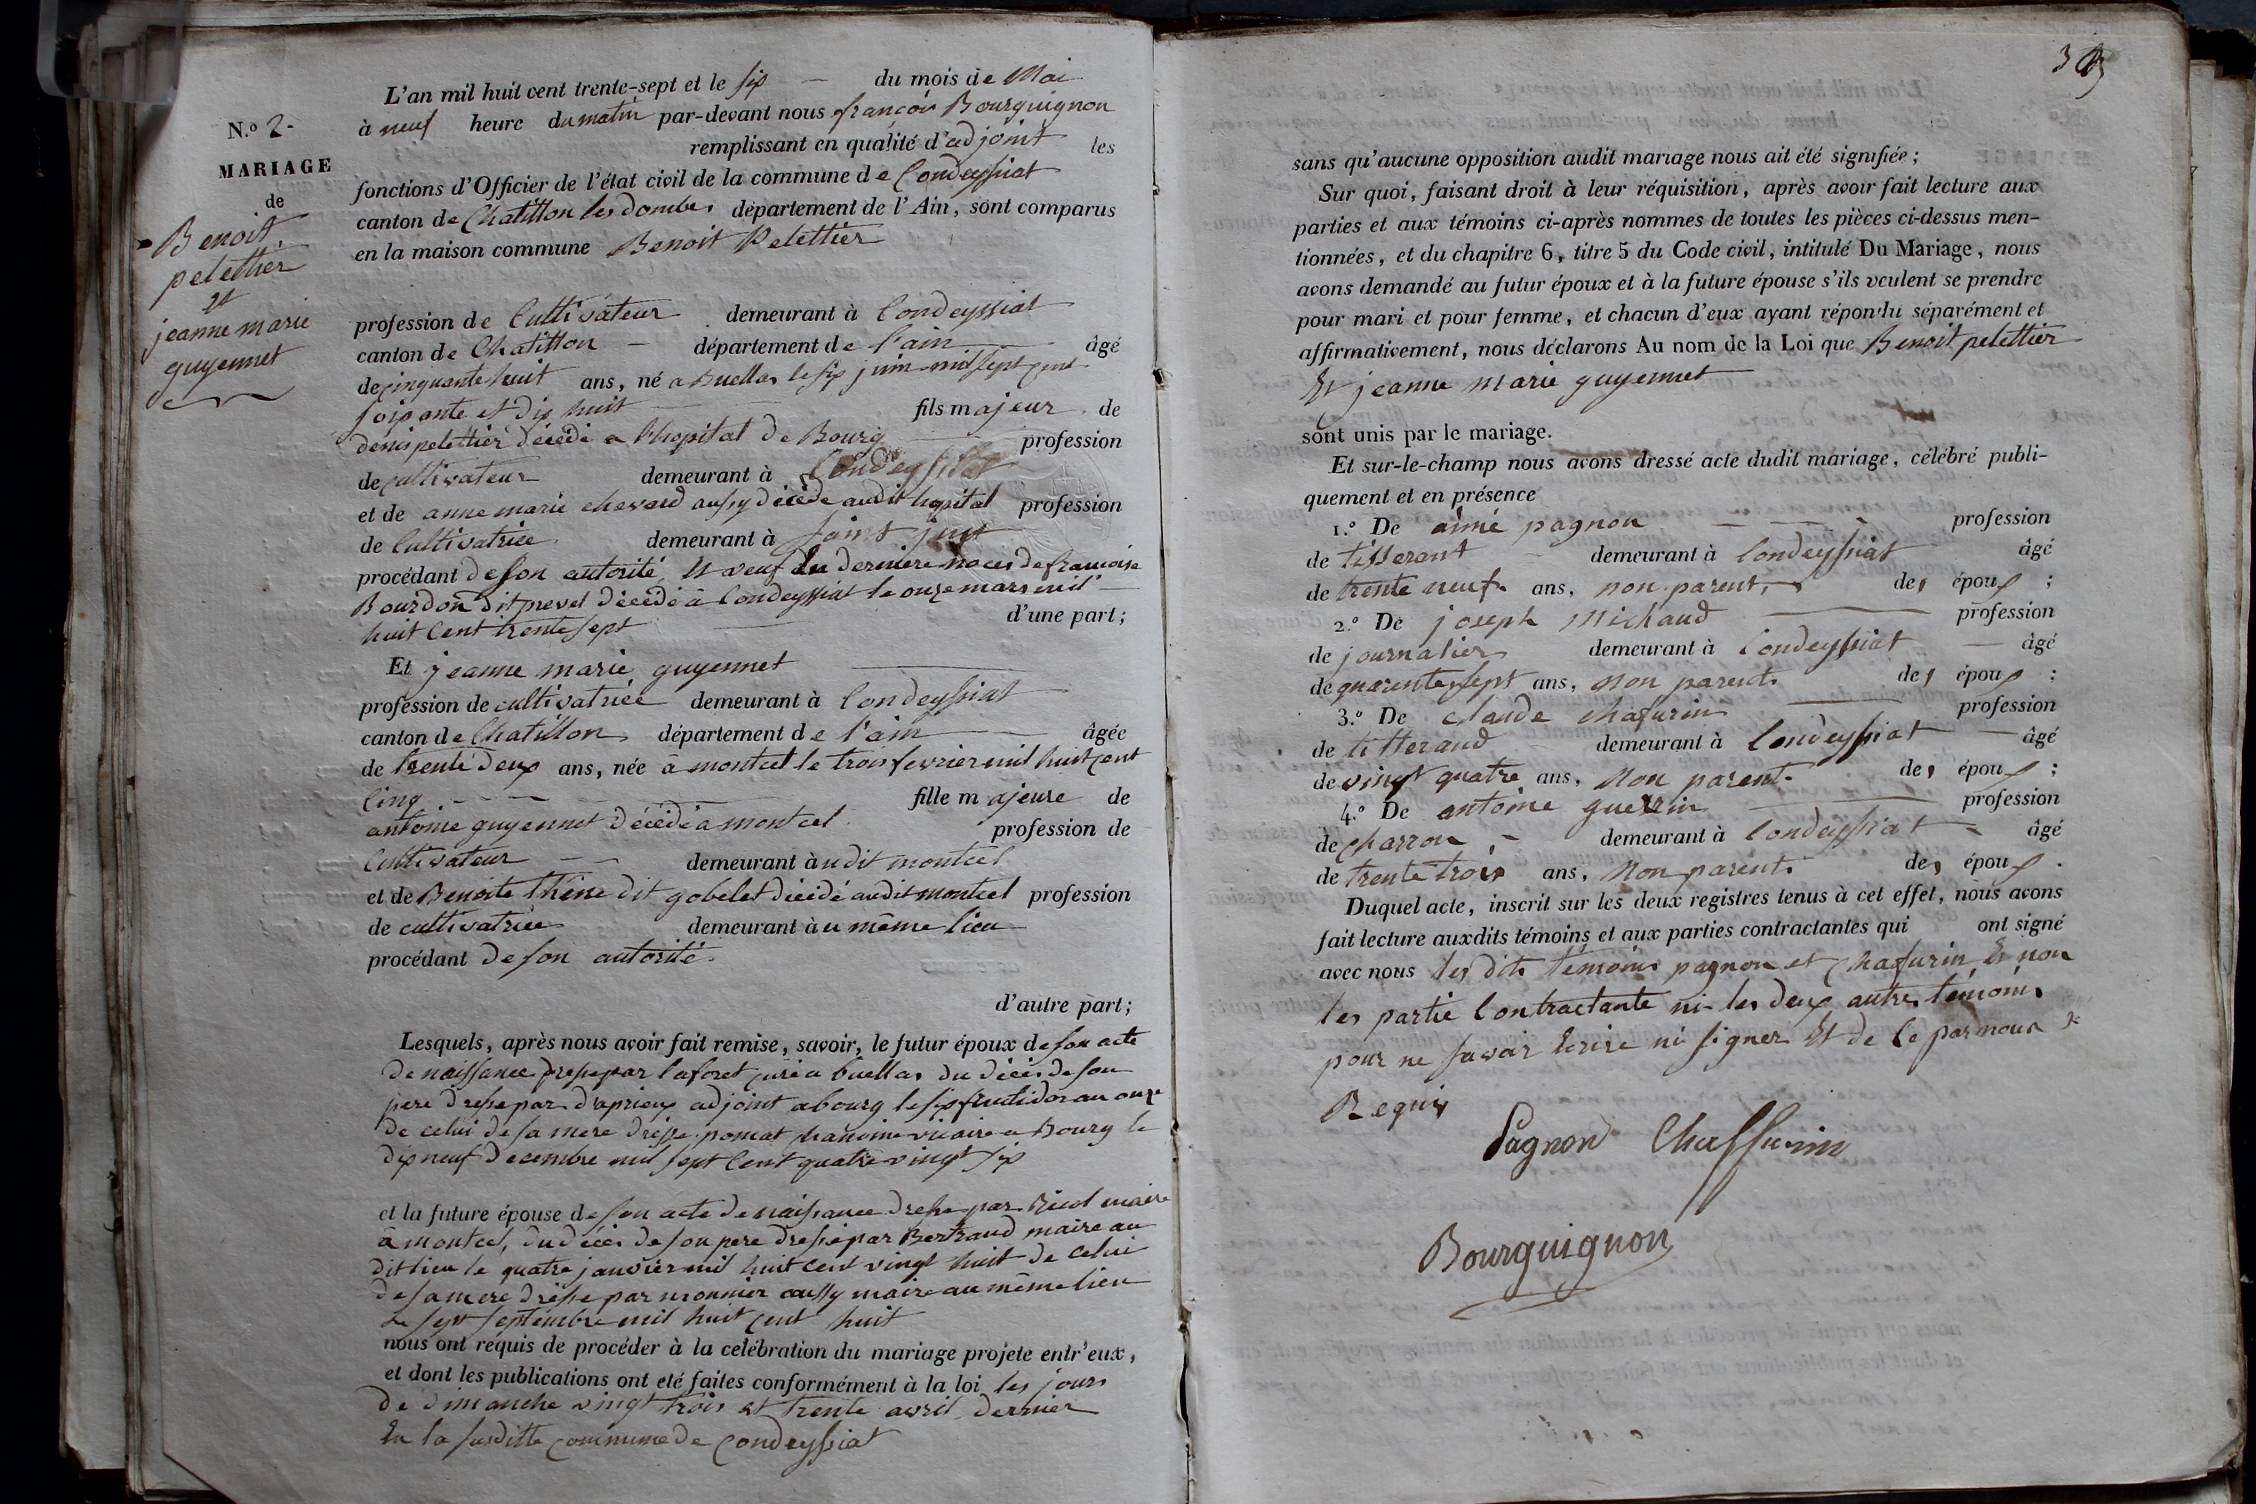 N.o 2-
MARIAGE
de
Benoit
pelettier
et
jeanne marie
guyennet
L'an mil huit cent trente-sept et le six du mois de Mai
à neuf heure du matin par-devant nous françois Bourguignon
remplissant en qualité d'adjoint les
fonctions d'Officier de l'état civil de la commune de Condeyssiat
canton de Chatillon les dombes département de l'Ain, sont comparus
en la maison commune Benoit Pelettier
profession de Cultivateur demeurant à Condeyssiat
canton de Chatillon département de l'ain âgé
de cinquante huit ans, né a Buellas le six juin mil sept cent
soixante et dix huit fils majeur de
denis pelettier décédé a l'hopital de Bourg profession
de cultivateur demeurant à Condeyssiat
et de anne marie chevard aussy décédé audit hopital profession
de Cultivatrice demeurant à saint just
procédant de son autorité, et veuf de dernière noces de francoise
Bourdon dit prevel décédé à Condeyssiat le onze mars mil
huit cent trente sept d'une part;
Et jeanne marie guyennet
profession de cultivatrice demeurant à Condeyssiat
canton de Chatillon département de l'ain âgée
de trente deux ans, née a montcel le trois fevrier mil huit cent
cinq fille majeure de
antoine guyennet décédé a montcel profession de
Cultivateur demeurant àudit montcel
et de Benoite thène dit gobelet décédé audit montcel profession
de cultivatrice demeurant àu même lieu
procédant de son autorité.
d'autre part;
Lesquels, après nous avoir fait remise, savoir, le futur époux de son acte
de naissance dressé par laforet curé a buellas du décés de son
pere dressé par daprieux adjoint a bourg le six fructidor an onze
de celui de sa mere dressé pomat chanoine vicaire a Bourg le
dix neuf decembre mil sept cent quatre vingt six
et la future épouse de son acte de naissance dressé par Ricol maire
a montcel, du décés de son pere dressé par Bertrand maire au
dit lieu le quatre janvier mil huit cent vingt huit de celui
de sa mere dressé par monnier aussy maire au même lieu
le sept septembre mil huit cent huit
nous ont réquis de procéder à la celébration du mariage projeté entr'eux,
et dont les publications ont eté faites conformément à la loi les jours
de dimanche vingt trois et trente avril dernier
En la susditte commune de Condeyssiat
sans qu'aucune opposition audit mariage nous ait été signifiée;
Sur quoi, faisant droit à leur réquisition, après avoir fait lecture aux
parties et aux témoins ci-après nommes de toutes les pièces ci-dessus men-
tionnées, et du chapitre 6, titre 5 du Code civil, intitulé Du Mariage, nous
avons demandé au futur époux et à la future épouse s'ils veulent se prendre
pour mari et pour femme, et chacun d'eux ayant répondu séparément et
affirmativement, nous déclarons Au nom de la Loi que Benoit pelettier
Et jeanne marie guyennet
sont unis par le mariage.
Et sur-le-champ nous avons dressé acte dudit mariage, célébré publi-
quement et en présence
1.o De aimé pagnon profession
de tisserant demeurant à Condeyssiat âgé
de trente neuf ans, non parent des époux;
2.o De joseph Michaud profession
de journalier demeurant à Condeyssiat âgé
de quarente sept ans, non parent des époux;
3.o De claude chafurin profession
de titterand demeurant à Condeyssiat âgé
de vingt quatre ans, non parent des époux;
4.o De antoine guerrin profession
de charron demeurant à Condeyssiat âgé
de trente trois ans, non parent des époux.
Duquel acte, inscrit sur les deux registres tenus à cet effet, nous avons
fait lecture auxdits témoins et aux parties contractantes qui ont signé
avec nous les dits témoins pagnon et chafurin Et non
les partie Contractante ni les deux autres témoins
pour ne savoir Ecrire ni signer Et de ce par nous
Requis
Pagnon Chaffurin
Bourguignon